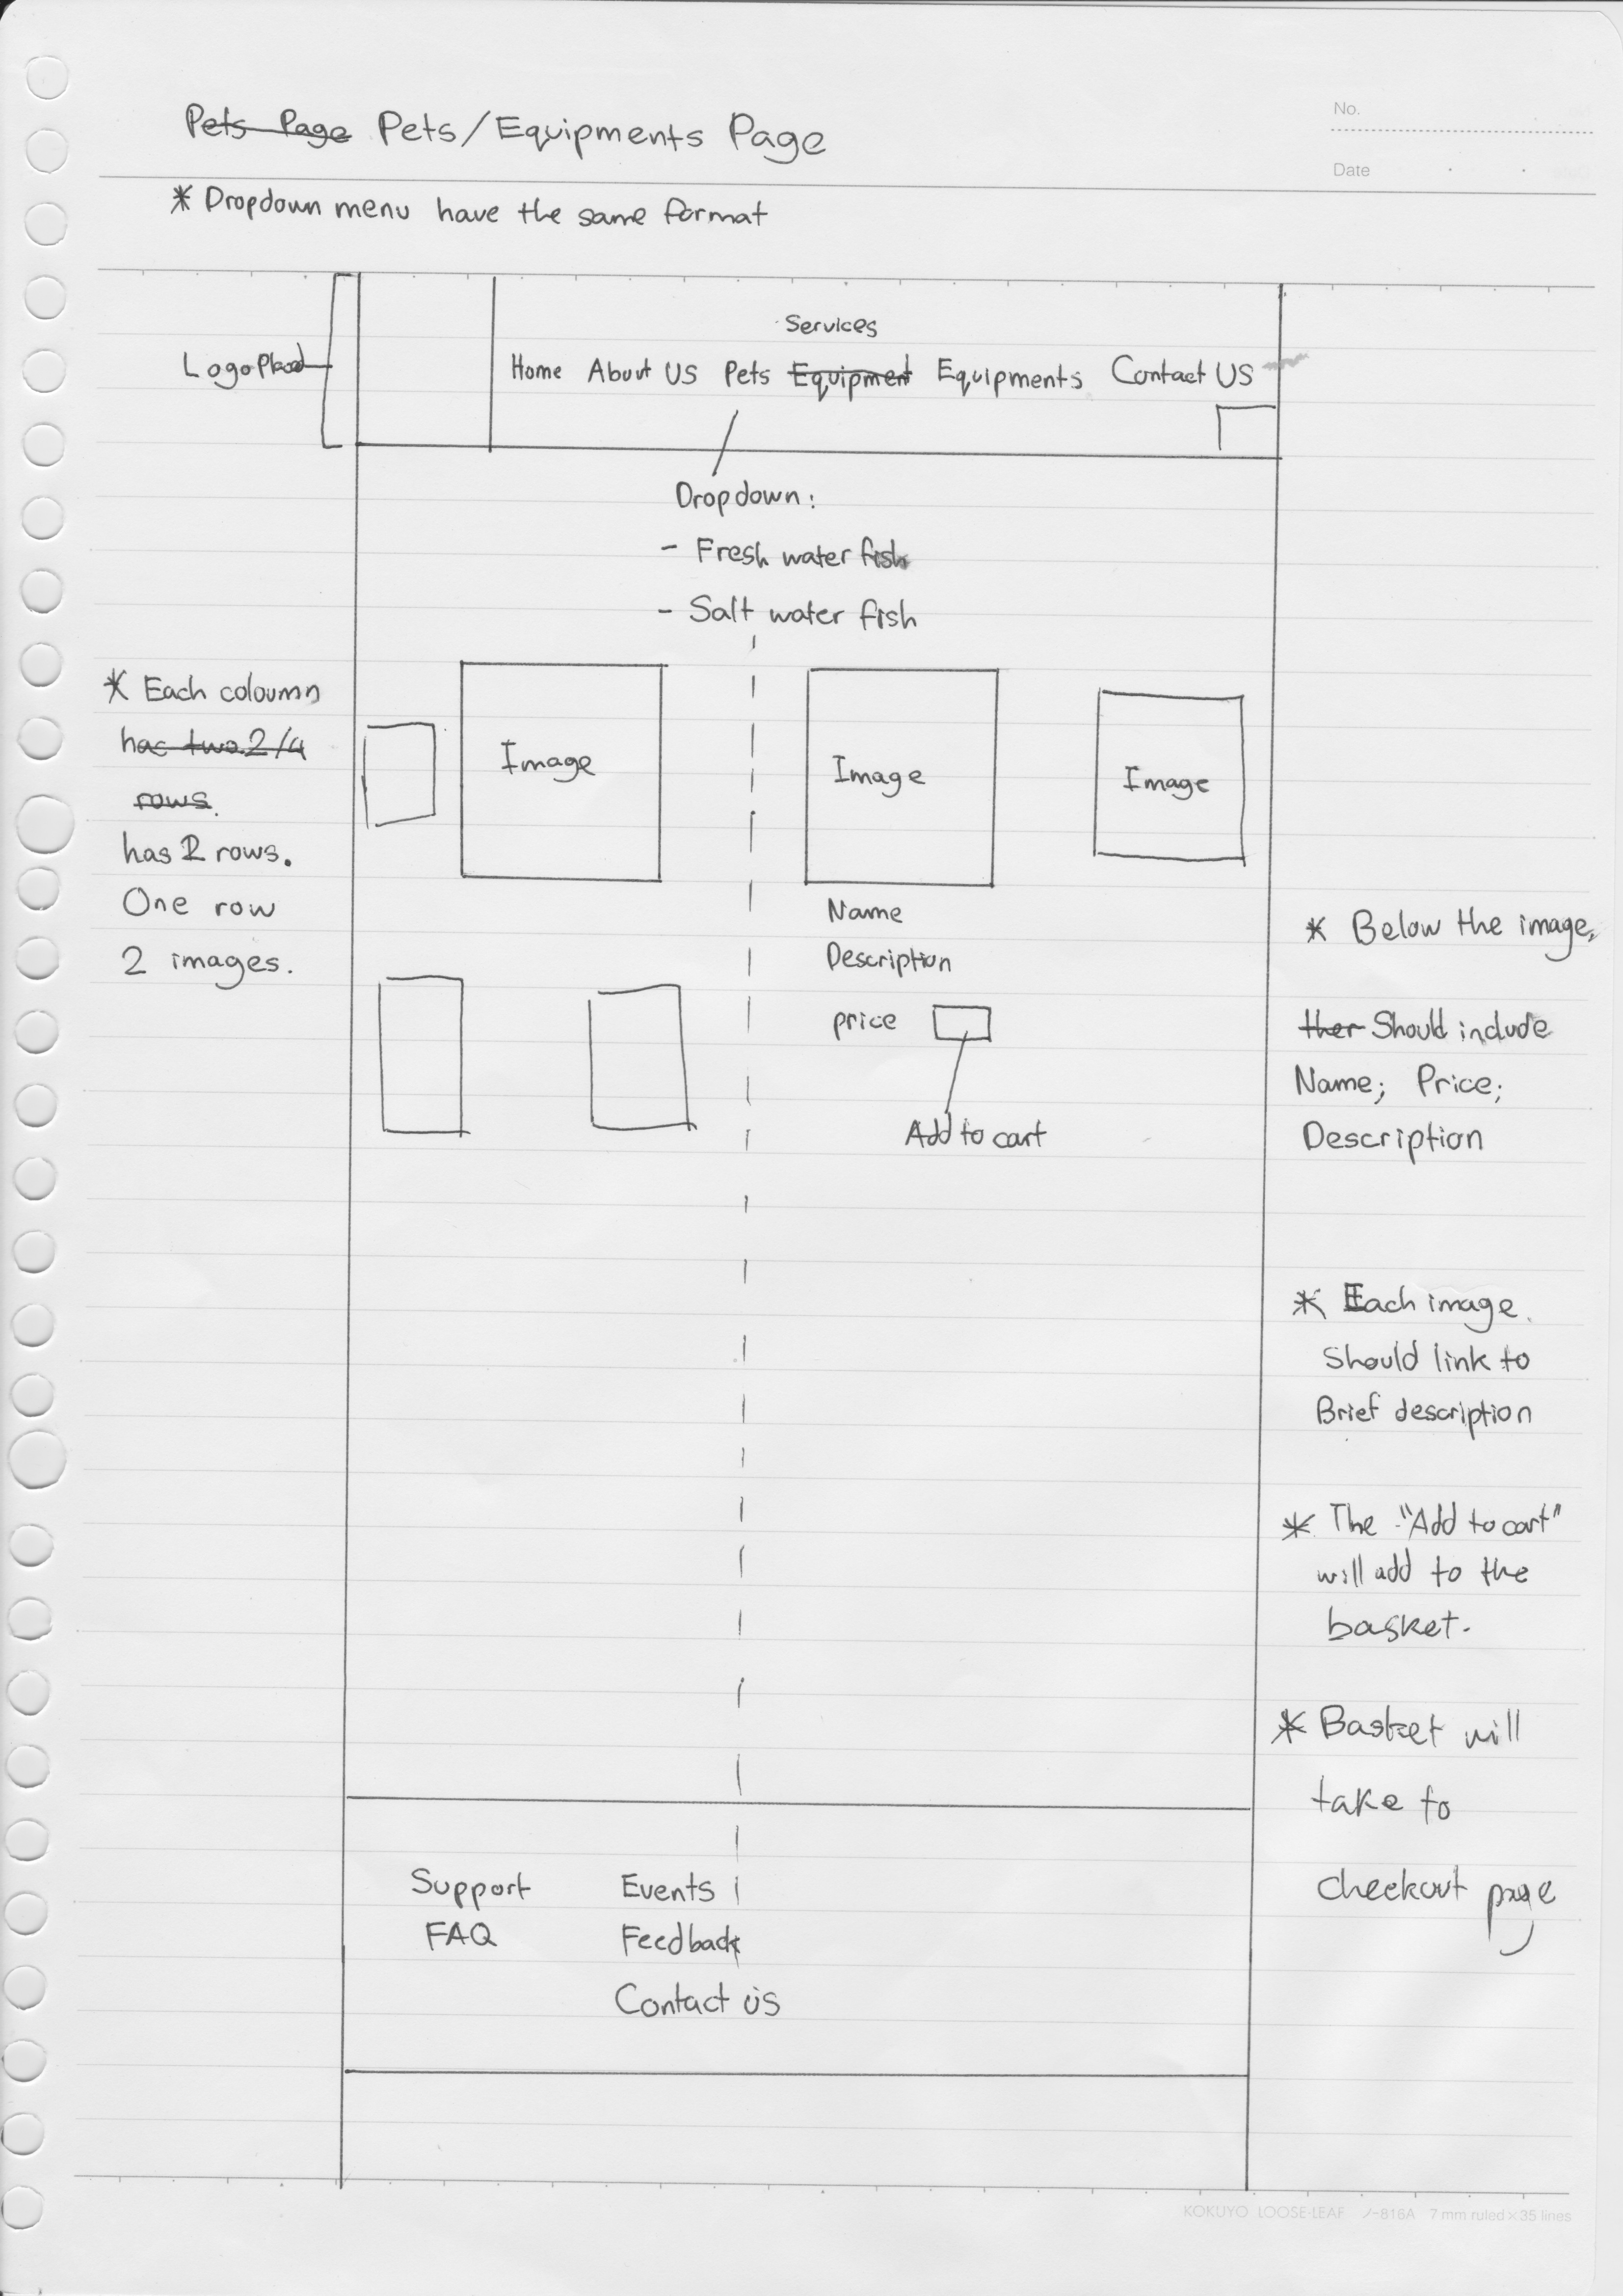 Pets Page Pets/Equipments Page
No.
Date
* Dropdown menu have the same format
Services
Logo
Home About US Pets Equipment Equipments Contact US
Dropdown:
- Fresh water fish
- Salt water fish
* Each coloumn
has two 2/4
rows.
has 2 rows.
One row
2 images.
Image
Image
Image
Name
Description
price
Add to cart
* Below the image,
ther Should include
Name; Price;
Description
* Each image.
Should link to
Brief description
* The "Add to cart"
will add to the
basket.
* Basket will
take to
checkout page
Support
FAQ
Events
Feedback
Contact us
KOKUYO LOOSE-LEAF ノ-816A 7 mm ruled×35 lines